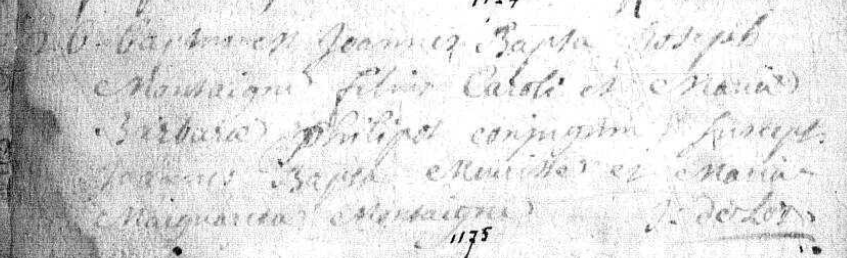 6 baptus est Joannes Bapta Joseph
Montaigne filius Caroli et Mariæ
Barbaræ philipot conjugum suscept.
Joannes Bapta Meurisse et Maria
Marguareta Montaigne
1175